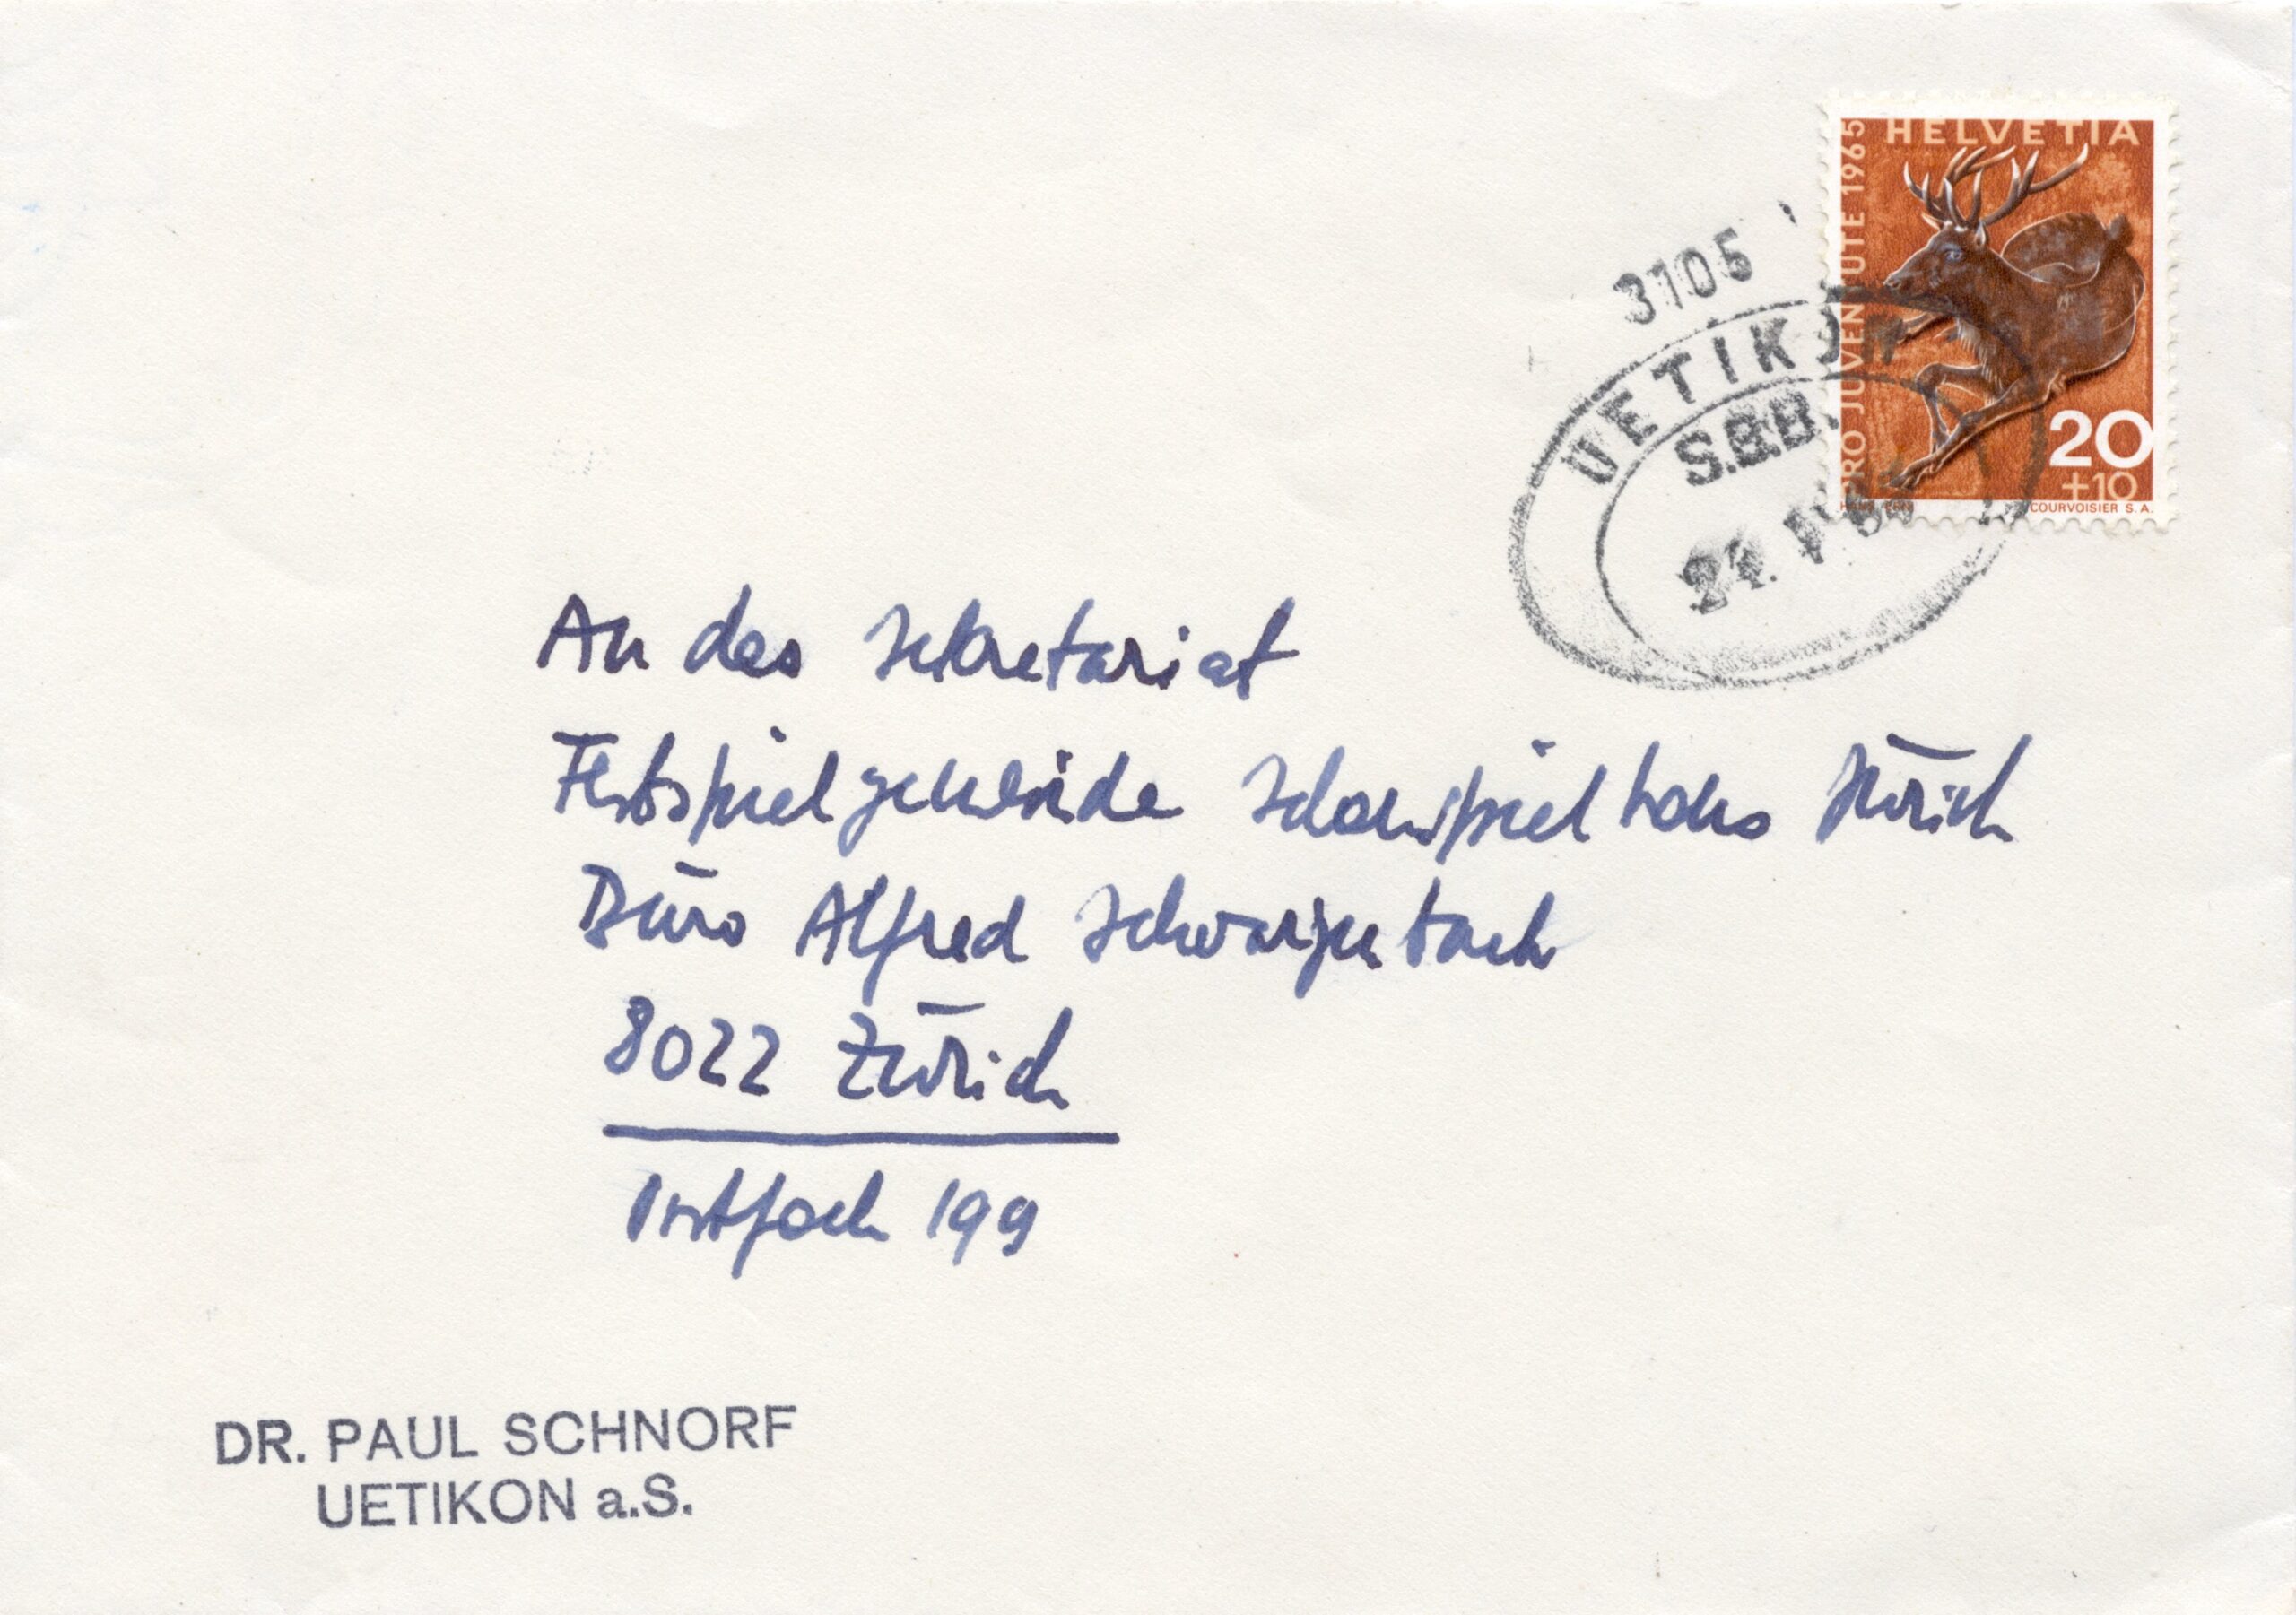 HELVETIA
PRO JUVENTUTE 1965
20
+10
COURVOISIER S.A.
3105
UETIKON
S.B.B.
24.
An das Sekretariat
Festspielgemeinde Schauspielhaus Zürich
Büro Alfred Schwarzenbach
8022 Zürich
Postfach 199
DR. PAUL SCHNORF
UETIKON a.S.